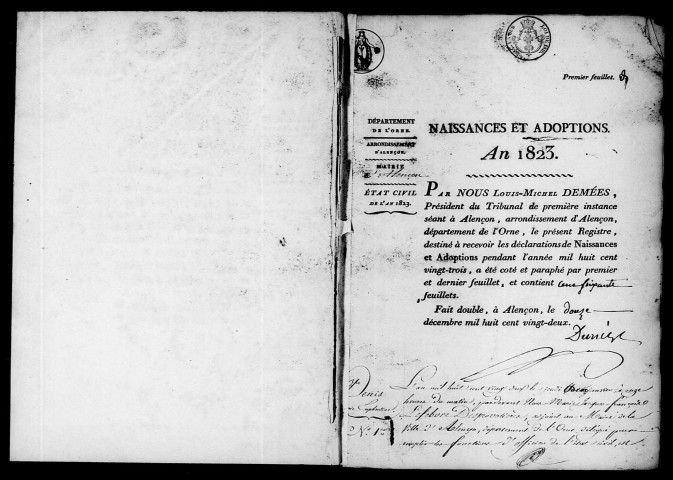 Premier feuillet.
DÉPARTEMENT
DE L'ORNE.
ARRONDISSEMENT
D'ALENÇON.
MAIRIE
d'Alençon
ÉTAT CIVIL
DE L'AN 1823.
NAISSANCES ET ADOPTIONS.
An 1823.
PAR NOUS LOUIS-MICHEL DEMÉES,
Président du Tribunal de première instance
séant à Alençon, arrondissement d'Alençon,
département de l'Orne, le présent Registre,
destiné à recevoir les déclarations de Naissances
et Adoptions pendant l'année mil huit cent
vingt-trois, a été coté et paraphé par premier
et dernier feuillet, et contient cent soixante
feuillets.
Fait double, à Alençon, le douze
décembre mil huit cent vingt-deux.
Denis
N.° 1er
L'an mil huit cent vingt trois le
heures du matin, pardevant Nous Marie Jacques françois
Lefebvre adjoint au Maire de la
Ville d'Alençon, département de l'Orne, délégué pour
remplir les fonctions d'officier de l'état civil, est